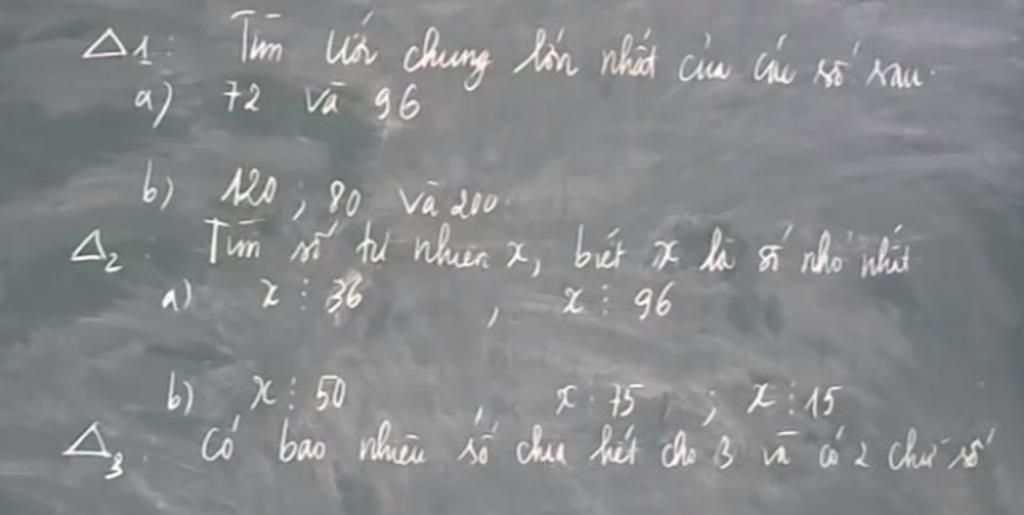 Δ1: Tìm ước chung lớn nhất của các số sau.
a) 72 và 96
b) 120 ; 80 và 200.
Δ2: Tìm số tự nhiên x, biết x là số nhỏ nhất
a) x ⋮ 36 , x ⋮ 96
b) x ⋮ 50 , x ⋮ 75 ; x ⋮ 15
Δ3. Có bao nhiêu số chia hết cho 3 và có 2 chữ số